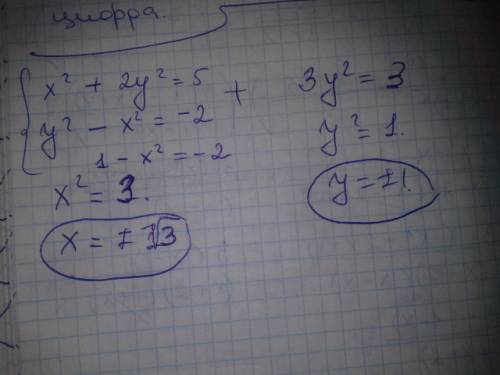 цифра.
x² + 2y² = 5 +
y² - x² = -2
1 - x² = -2
x² = 3.
x = ±√3
3y² = 3
y² = 1.
y = ±1.